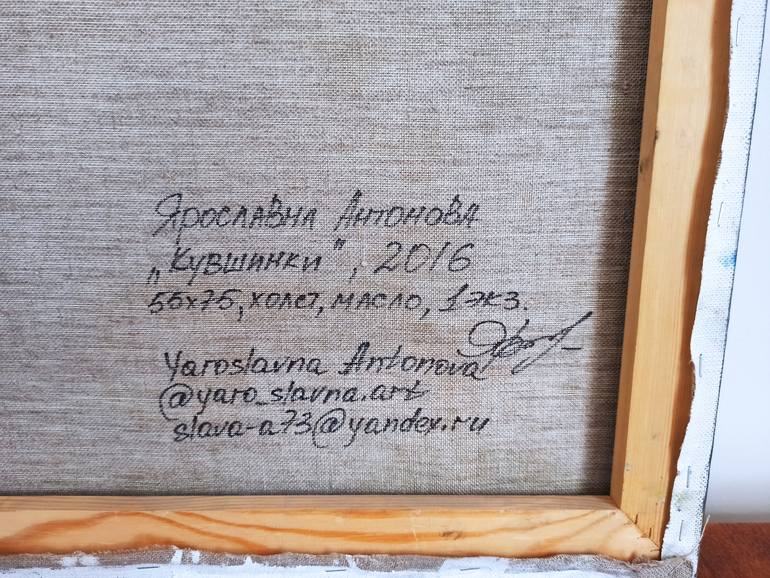 Ярославна Антонова
„Кувшинки", 2016
55х75, холст, масло, 1 экз.
Yaroslavna Antonova
@yaro_slavna.art
slava-a73@yandex.ru